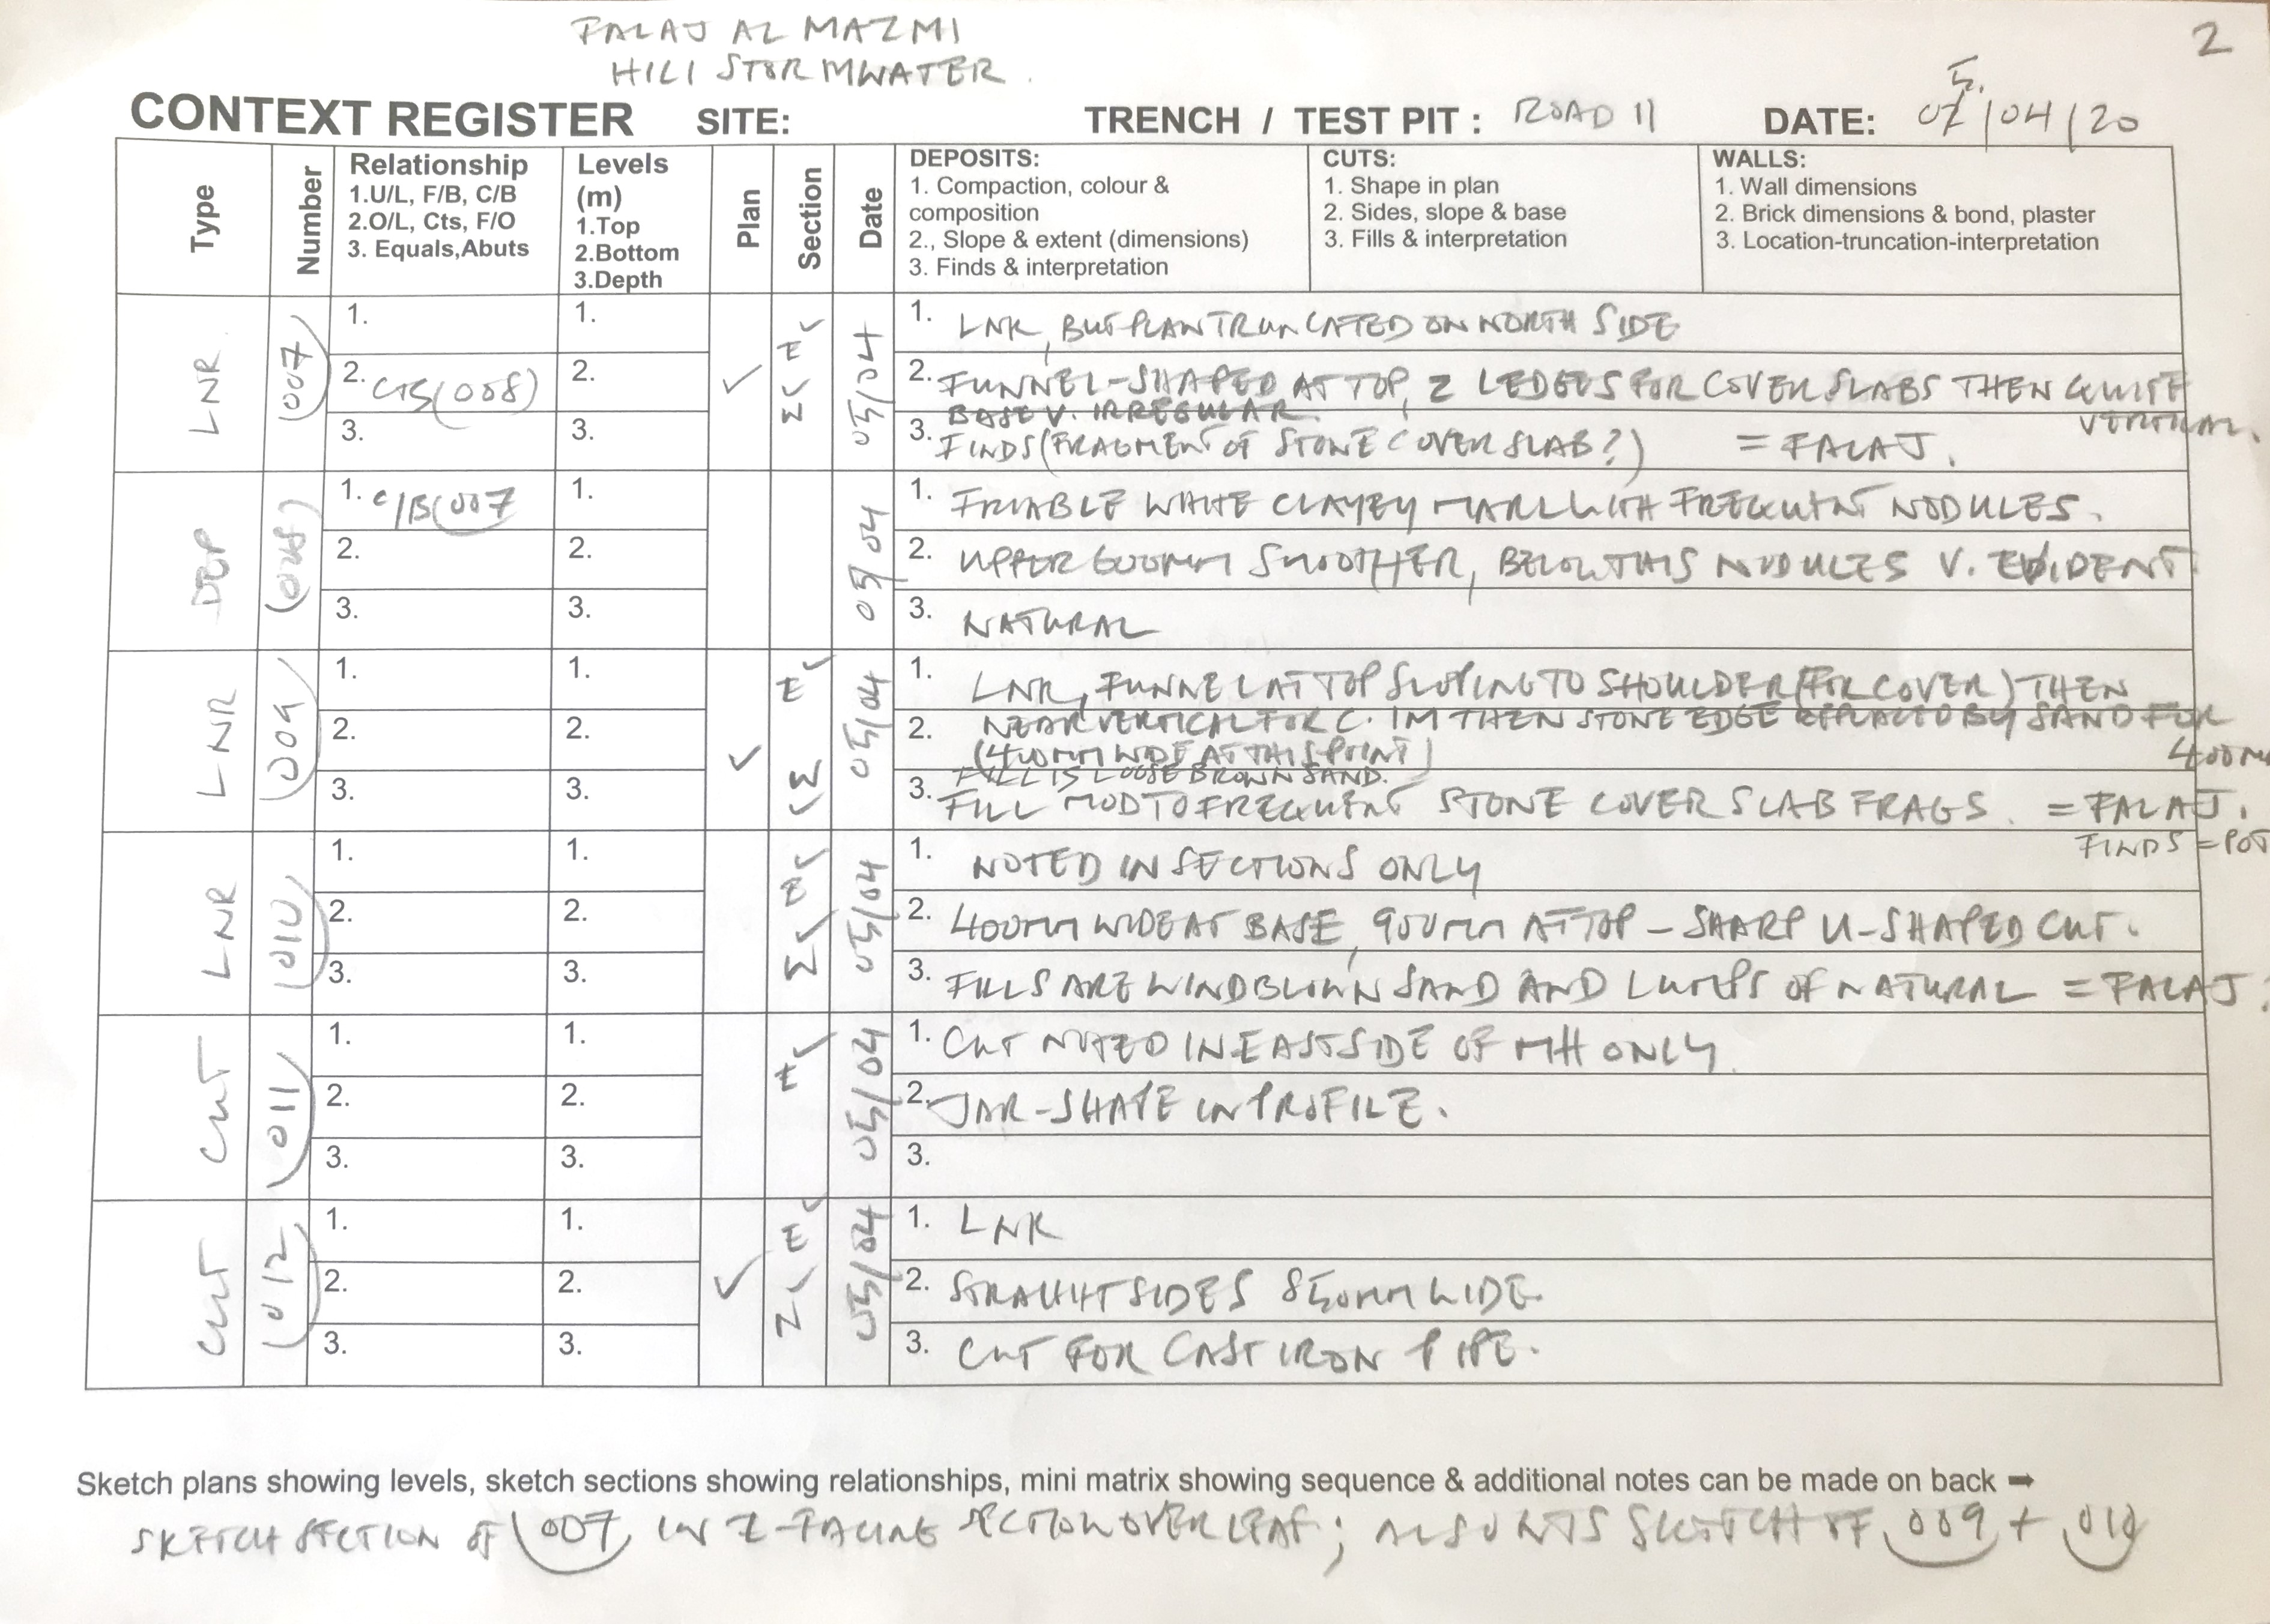 FALAJ AL MAZMI
HILI STORMWATER
2
CONTEXT REGISTER SITE: TRENCH / TEST PIT : ROAD 11 DATE: 05/04/20
Type
Number
Relationship
1.U/L, F/B, C/B
2.O/L, Cts, F/O
3. Equals,Abuts
Levels
(m)
1.Top
2.Bottom
3.Depth
Plan
Section
Date
DEPOSITS:
1. Compaction, colour &
composition
2., Slope & extent (dimensions)
3. Finds & interpretation
CUTS:
1. Shape in plan
2. Sides, slope & base
3. Fills & interpretation
WALLS:
1. Wall dimensions
2. Brick dimensions & bond, plaster
3. Location-truncation-interpretation
LNR (007) ✓ 05/04
1. 1. 1. LNR, BUT PLAN TRUNCATED ON NORTH SIDE
2. CTS (008) 2. 2. FUNNEL-SHAPED AT TOP, 2 LEDGES FOR COVER SLABS THEN QUITE VERTICAL.
BASE V. IRREGULAR.
3. 3. 3. FINDS (FRAGMENT OF STONE COVER SLAB?) = FALAJ.
DEP (008) 05/04
1. C/B (007 1. 1. FRIABLE WHITE CLAYEY MARL WITH FREQUENT NODULES.
2. 2. 2. UPPER 600MM SMOOTHER, BELOW THIS NODULES V. EVIDENT.
3. 3. 3. NATURAL
LNR (009) ✓ E ✓ 05/04
1. 1. 1. LNR, FUNNEL AT TOP SLOPING TO SHOULDER (FOR COVER) THEN
2. 2. 2. NEAR VERTICAL FOR C. 1M THEN STONE EDGE REPLACED BY SAND FOR 400MM
(400MM WIDE AT THIS POINT)
FILL IS LOOSE BROWN SAND.
3. 3. 3. FILL MOD TO FREQUENT STONE COVER SLAB FRAGS. = FALAJ.
FINDS = POT
LNR (010) 05/04
1. 1. 1. NOTED IN SECTIONS ONLY
2. 2. 2. 400MM WIDE AT BASE, 900MM AT TOP – SHARP U-SHAPED CUT.
3. 3. 3. FILLS ARE WINDBLOWN SAND AND LUMPS OF NATURAL = FALAJ?
CUT (011) E ✓ 05/04
1. 1. 1. CUT NOTED IN EAST SIDE OF MH ONLY.
2. 2. 2. JAR-SHAPE IN PROFILE.
3. 3. 3.
CUT (012) ✓ E ✓ 05/04
1. 1. 1. LNR
2. 2. 2. STRAIGHT SIDES 850MM WIDE.
3. 3. 3. CUT FOR CAST IRON PIPE.
Sketch plans showing levels, sketch sections showing relationships, mini matrix showing sequence & additional notes can be made on back ➡
SKETCH SECTION OF (007) IN E-FACING SECTION OVERLEAF; ALSO NTS SKETCH OF (009) + (010)